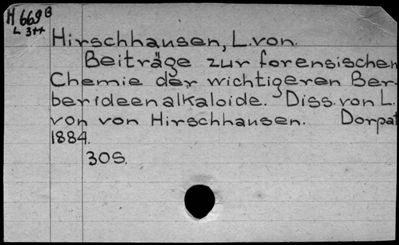 H 669B
L 3++
Hirschhausen, L. von.
Beiträge zur forensischen
Chemie der wichtigeren Ber-
berideenalkaloide. Diss. von L.
von von Hirschhausen. Dorpat
1884.
30S.